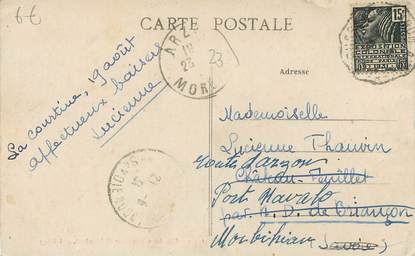 6€
CARTE POSTALE
ARZ
19
23
MOR
23
15c
EXPOSITION
COLONIALE
INTERNATIONALE
La courtine, 19 août
affectueux baisers
Lucienne
Adresse
Mademoiselle
Lucienne Thauvin
Château-Feuillet
Port Navalo
par N. D. de Briançon
Morbihan (Savoie)